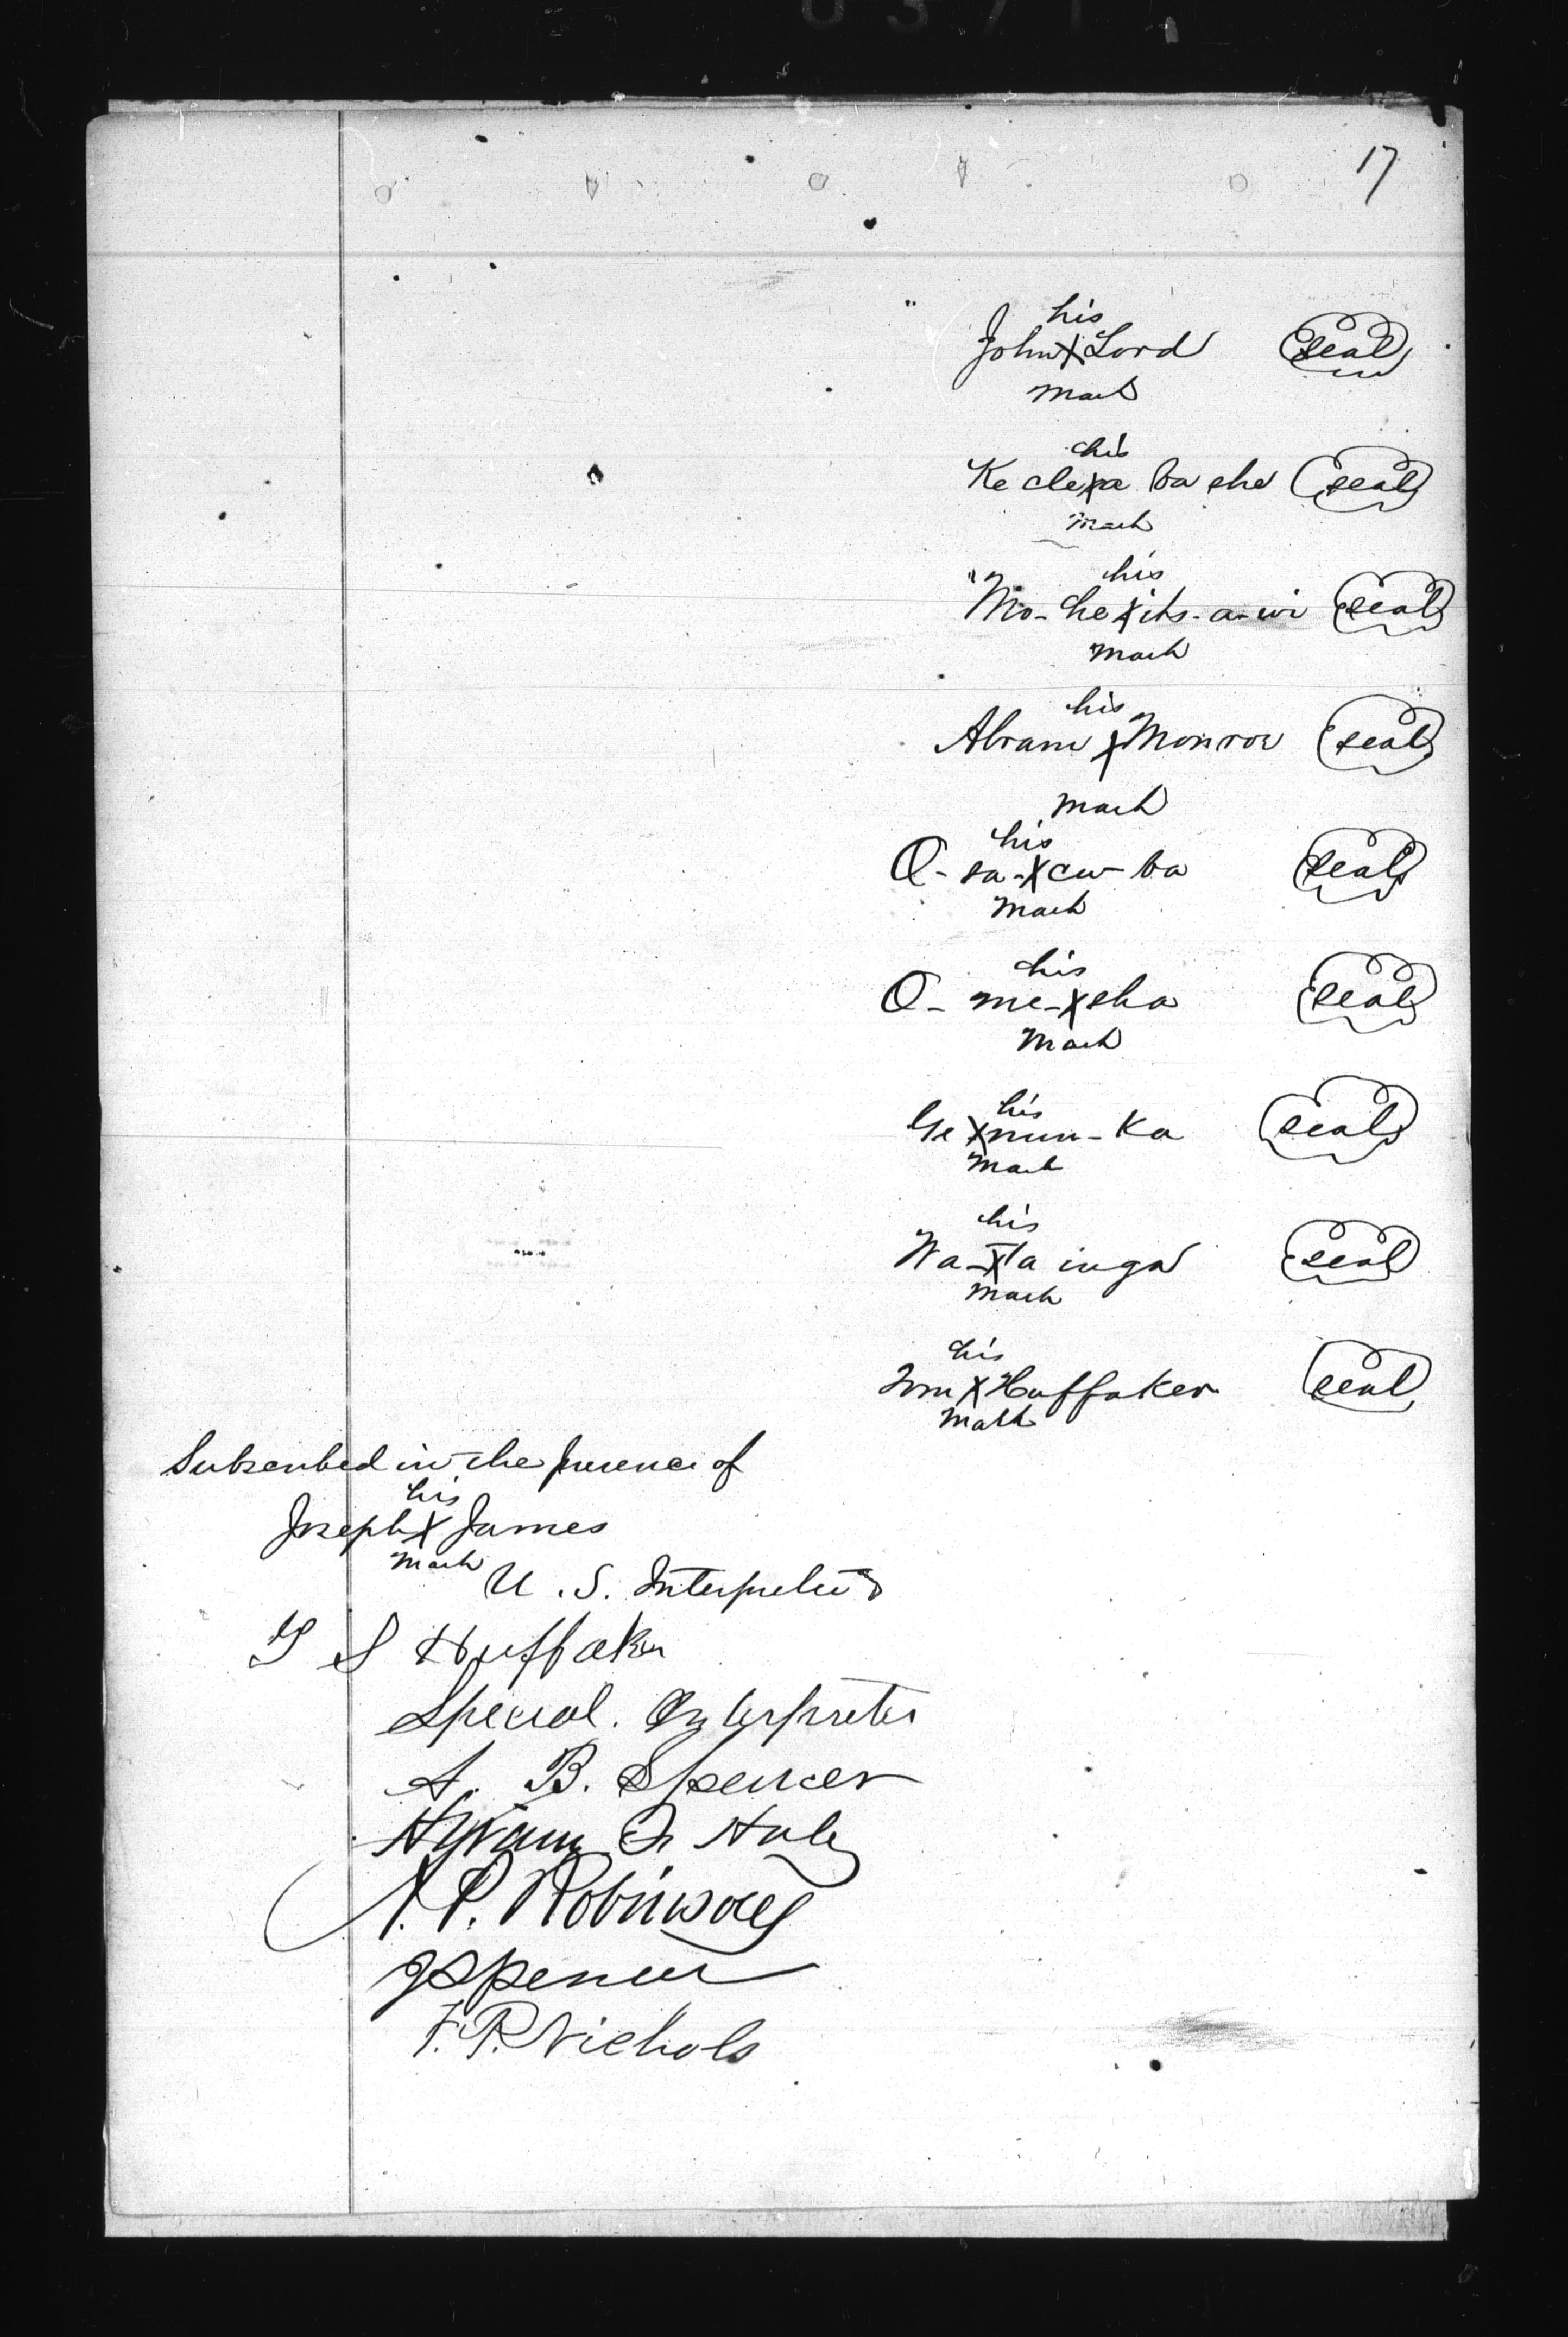 17
his
John X Lord seal
mark
his
Ke cle X a ba she seal
mark
his
"Mo-he X its-a-wi seal
mark
his
Abram X Monroe seal
mark
his
O-sa-X cu-ba seal
mark
his
O-me-X sha seal
mark
his
Ge X nun-Ka seal
mark
his
Wa-X ta inga seal
mark
his
Wm X Huffaker seal
mark
Subscribed in the presence of
his
Joseph X James
mark
U.S. Interpreter
T S Huffaker
Special. Interpreter
A. B. Spencer
Hiram
P. Robinson
J Spencer
F. P. Nichols